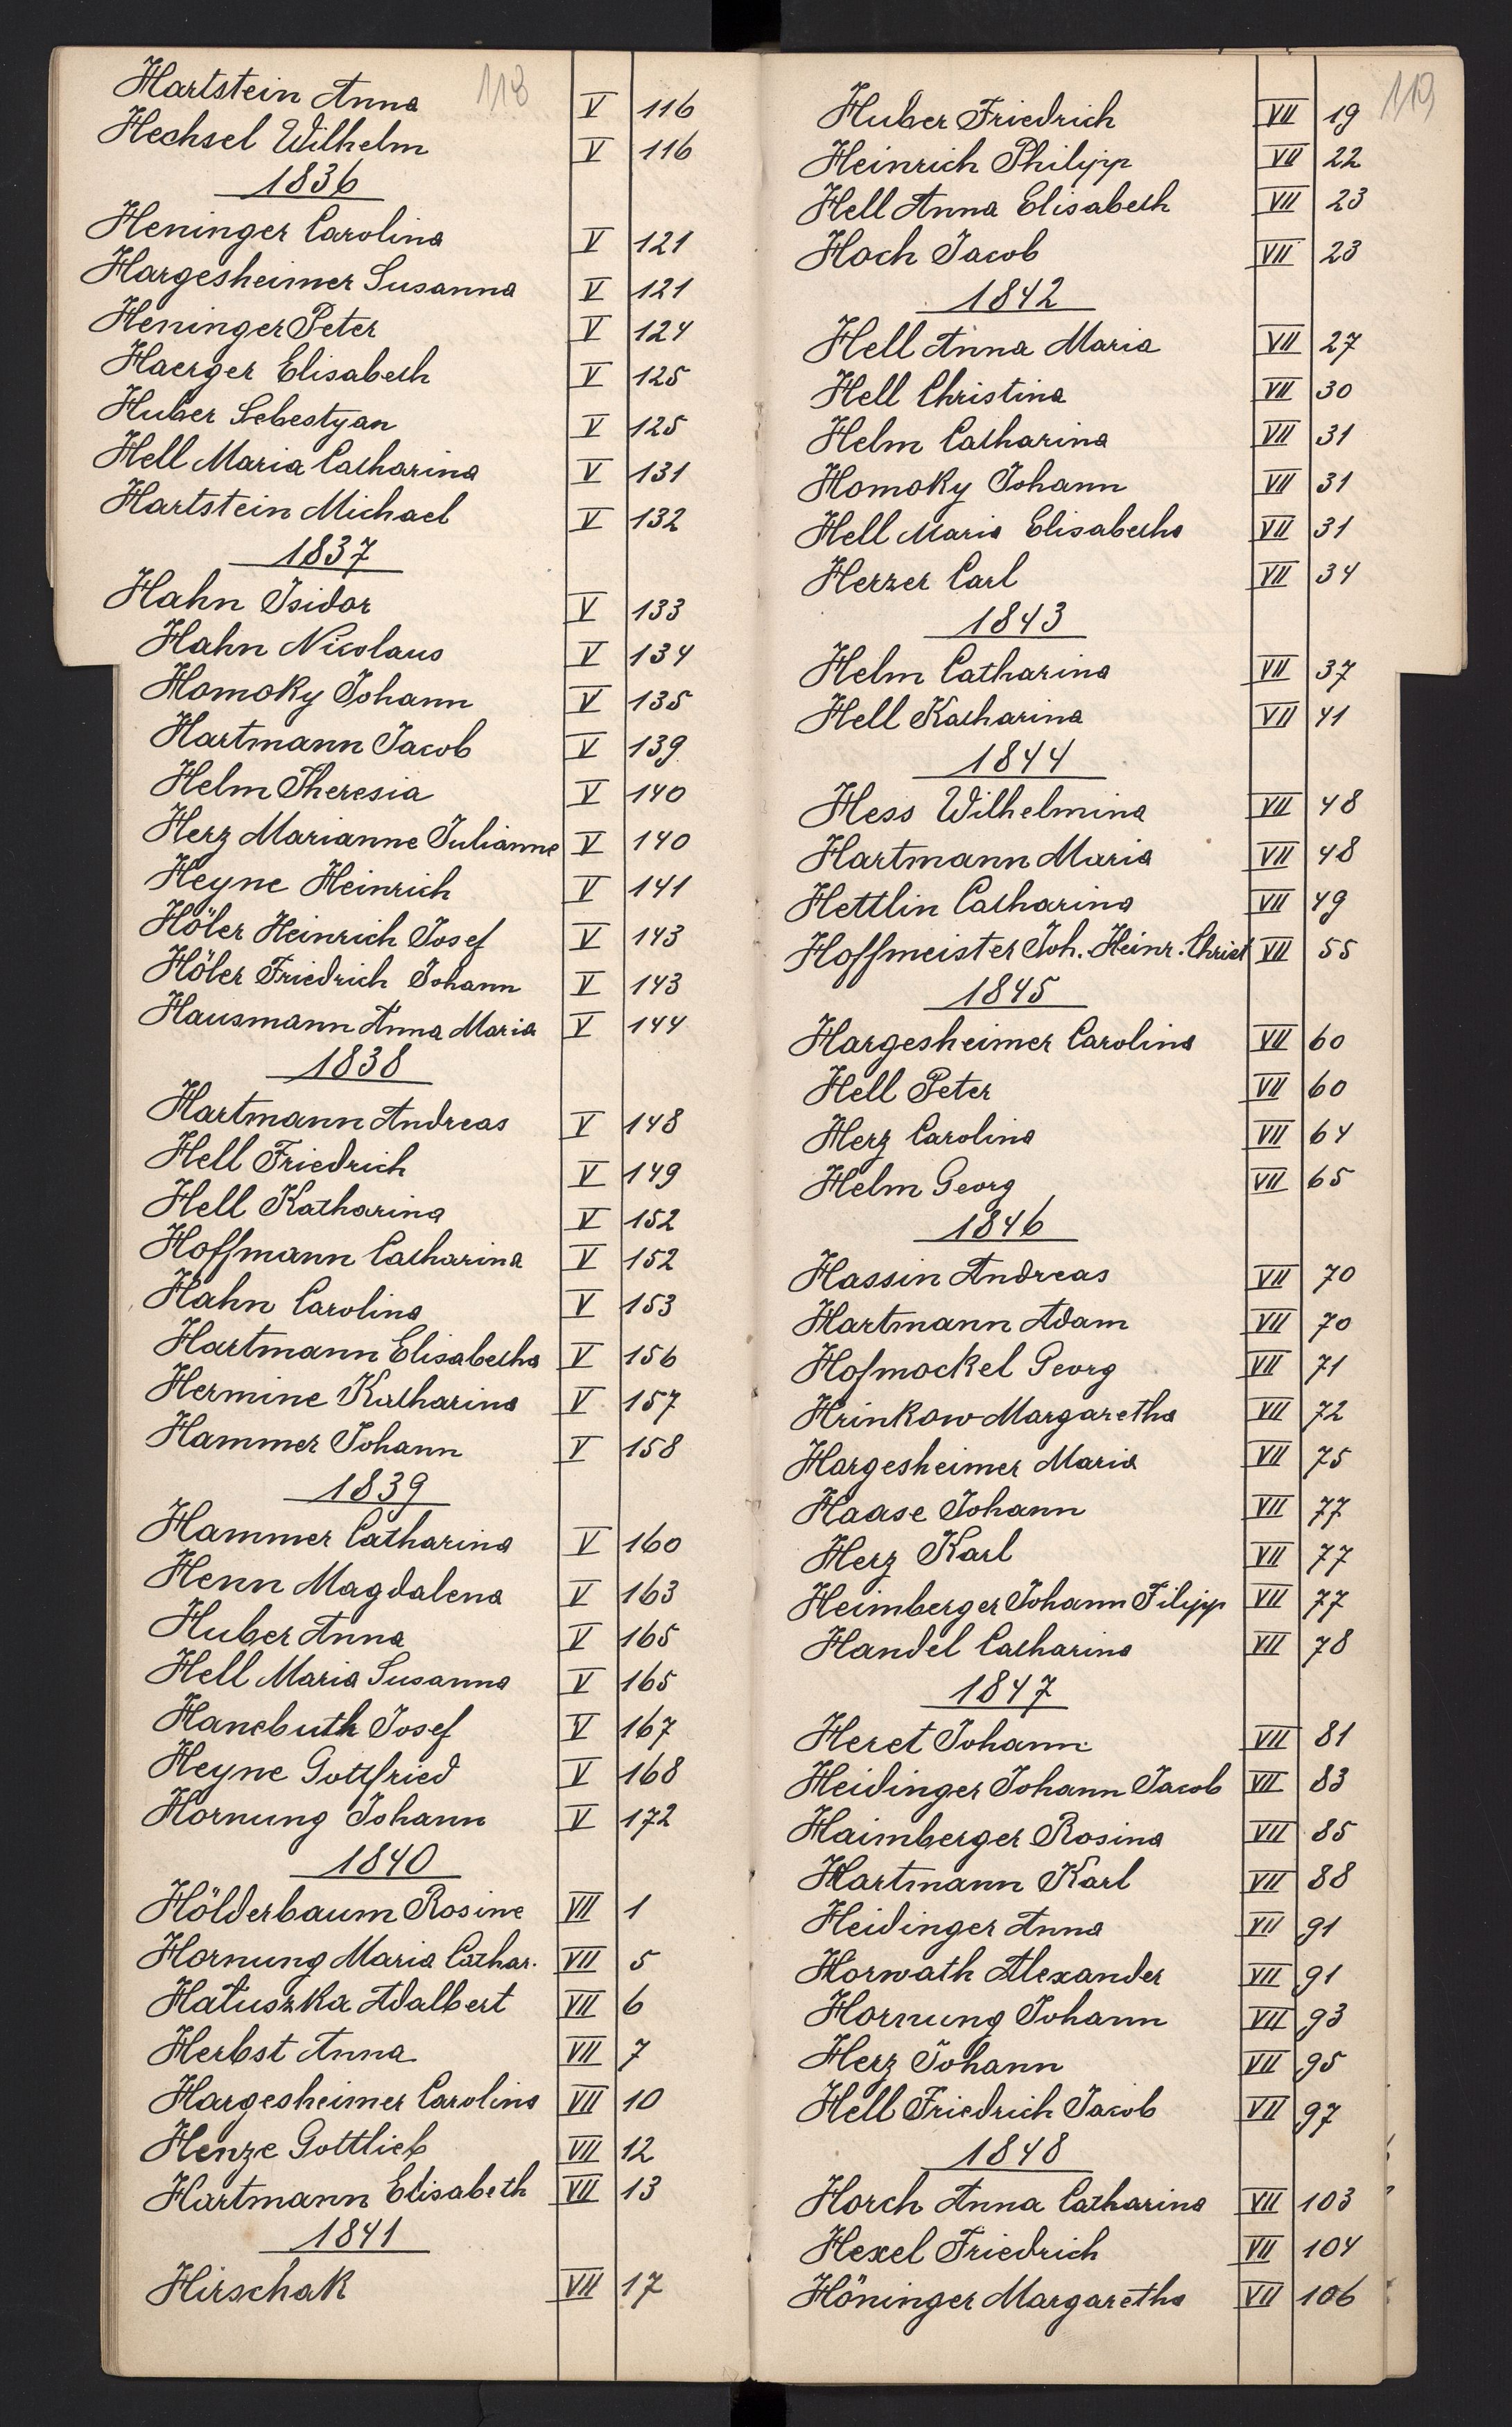 118
Hartstein Anna V 116
Hechsel Wilhelm V 116
1836
Heninger Carolina V 121
Hargesheimer Susanna V 121
Heninger Peter V 124
Haerger Elisabeth V 125
Huber Sebestyan V 125
Hell Maria Catharina V 131
Hartstein Michael V 132
1837
Hahn Isidor V 133
Hahn Nicolaus V 134
Homoky Johann V 135
Hartmann Jacob V 139
Helm Theresia V 140
Herz Marianne Julianne V 140
Heyne Heinrich V 141
Höler Heinrich Josef V 143
Höler Friedrich Johann V 143
Hausmann Anna Maria V 144
1838
Hartmann Andreas V 148
Hell Friedrich V 149
Hell Katharina V 152
Hoffmann Catharina V 152
Hahn Carolina V 153
Hartmann Elisabetha V 156
Hermine Katharina V 157
Hammer Johann V 158
1839
Hammer Catharina V 160
Henn Magdalena V 163
Huber Anna V 165
Hell Maria Susanna V 165
Hanebuth Josef V 167
Heyne Gottfried V 168
Hornung Johann V 172
1840
Hölderbaum Rosine VII 1
Hornung Maria Cathar. VII 5
Hatuszka Adalbert VII 6
Herbst Anna VII 7
Hargesheimer Carolina VII 10
Henze Gottlieb VII 12
Hartmann Elisabeth VII 13
1841
Hirschak VII 17
119
Huber Friedrich VII 19
Heinrich Philipp VII 22
Hell Anna Elisabeth VII 23
Hoch Jacob VII 23
1842
Hell Anna Maria VII 27
Hell Christina VII 30
Helm Catharina VII 31
Homoky Johann VII 31
Hell Maria Elisabetha VII 31
Herzer Carl VII 34
1843
Helm Catharina VII 37
Hell Katharina VII 41
1844
Hess Wilhelmina VII 48
Hartmann Maria VII 48
Hettlin Catharina VII 49
Hoffmeister Joh. Heinr. Christ VII 55
1845
Hargesheimer Carolina VII 60
Hell Peter VII 60
Herz Carolina VII 64
Helm Georg VII 65
1846
Hassin Andreas VII 70
Hartmann Adam VII 70
Hofmockel Georg VII 71
Hrinkow Margaretha VII 72
Hargesheimer Maria VII 75
Haase Johann VII 77
Herz Karl VII 77
Heimberger Johann Filipp VII 77
Handel Catharina VII 78
1847
Heret Johann VII 81
Heidinger Johann Jacob VII 83
Haimberger Rosina VII 85
Hartmann Karl VII 88
Heidinger Anna VII 91
Horwath Alexander VII 91
Hornung Johann VII 93
Herz Johann VII 95
Hell Friedrich Jacob VII 97
1848
Horch Anna Catharina VII 103
Hexel Friedrich VII 104
Höninger Margaretha VII 106